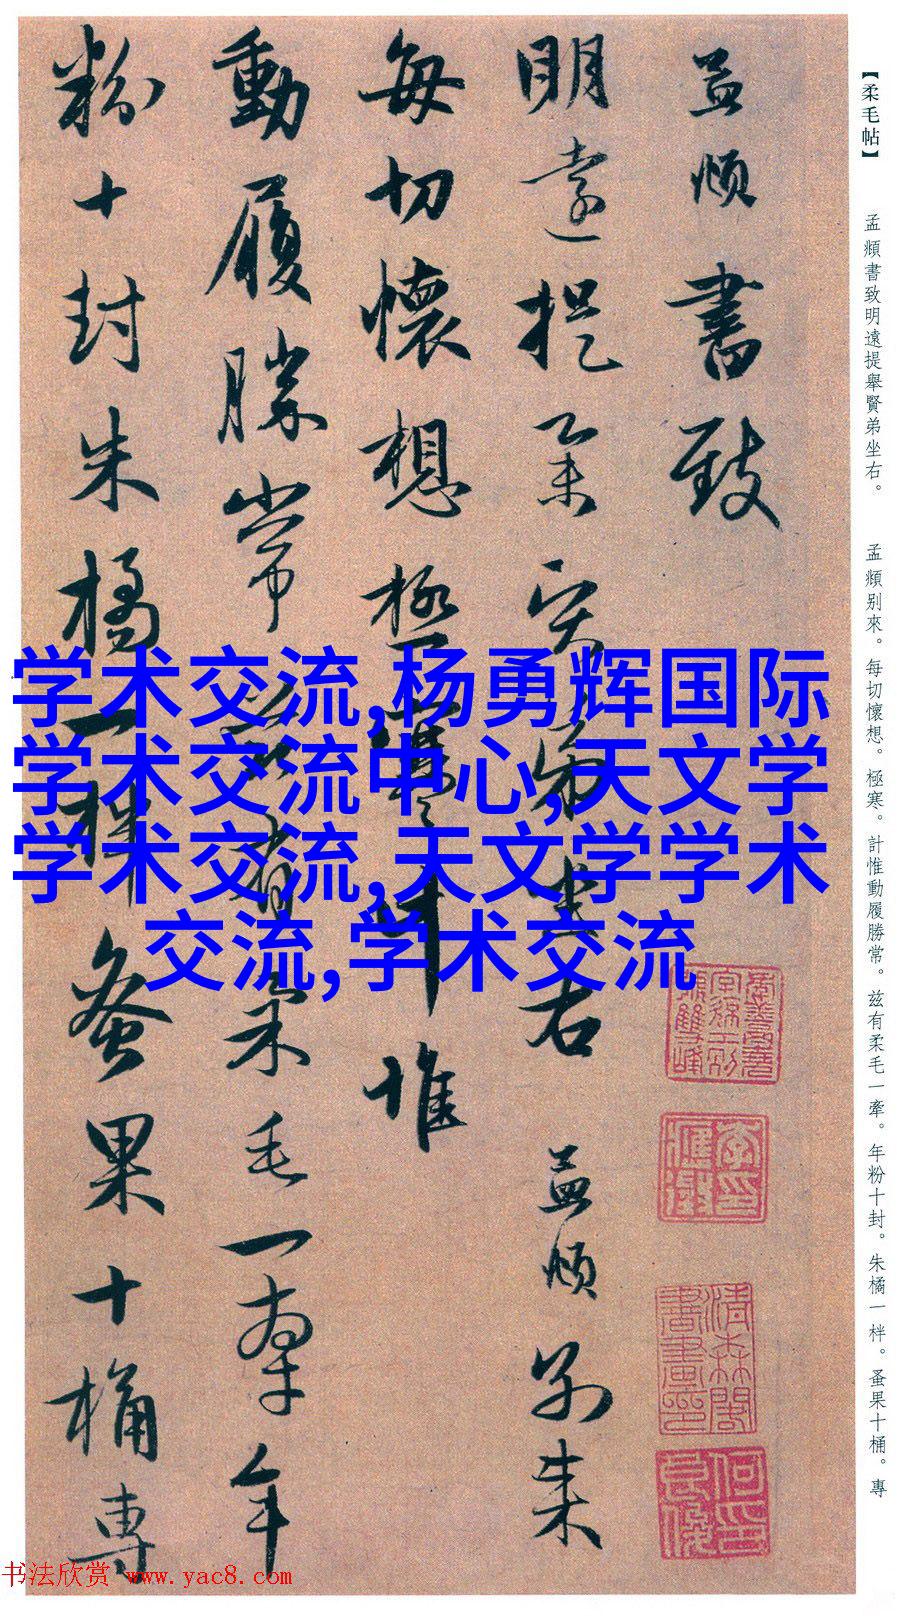 【柔毛帖】 孟頫書致明遠提舉賢弟坐右。 孟頫别來。每切懷想。極寒。計惟動履勝常。兹有柔毛一牽。年粉十封。朱橘一柈。蚤果十桶。專
孟頫書致
明遠提舉賢弟坐右 孟頫别來
每切懷想極寒計惟
動履勝常兹有柔毛一牽年
粉十封朱橘一柈蚤果十桶專
学术交流,杨勇辉国际
学术交流中心,天文学
学术交流,天文学学术
交流,学术交流
书法欣赏 www.yac8.com